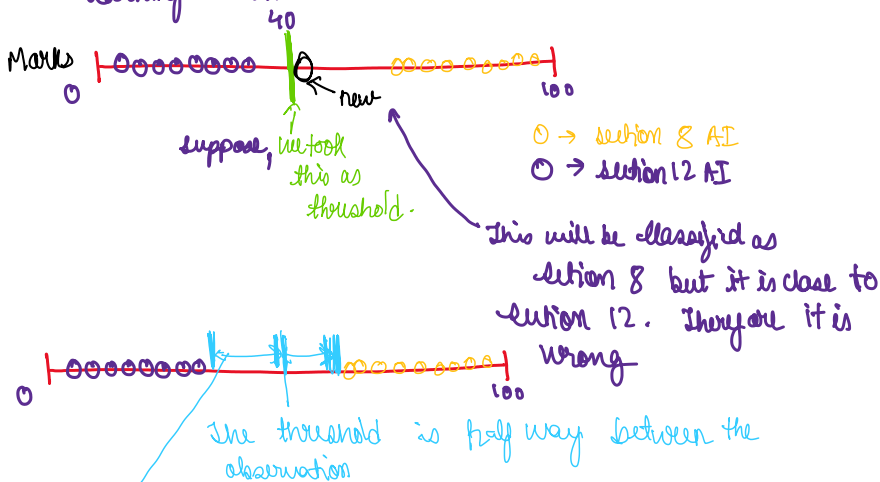 40
Marks
0
100
new
suppose, we took
this as
threshold.
O → section 8 AI
O → section 12 AI
This will be classified as
section 8 but it is close to
section 12. Therefore it is
wrong
0
100
The threshold is half way between the
observation